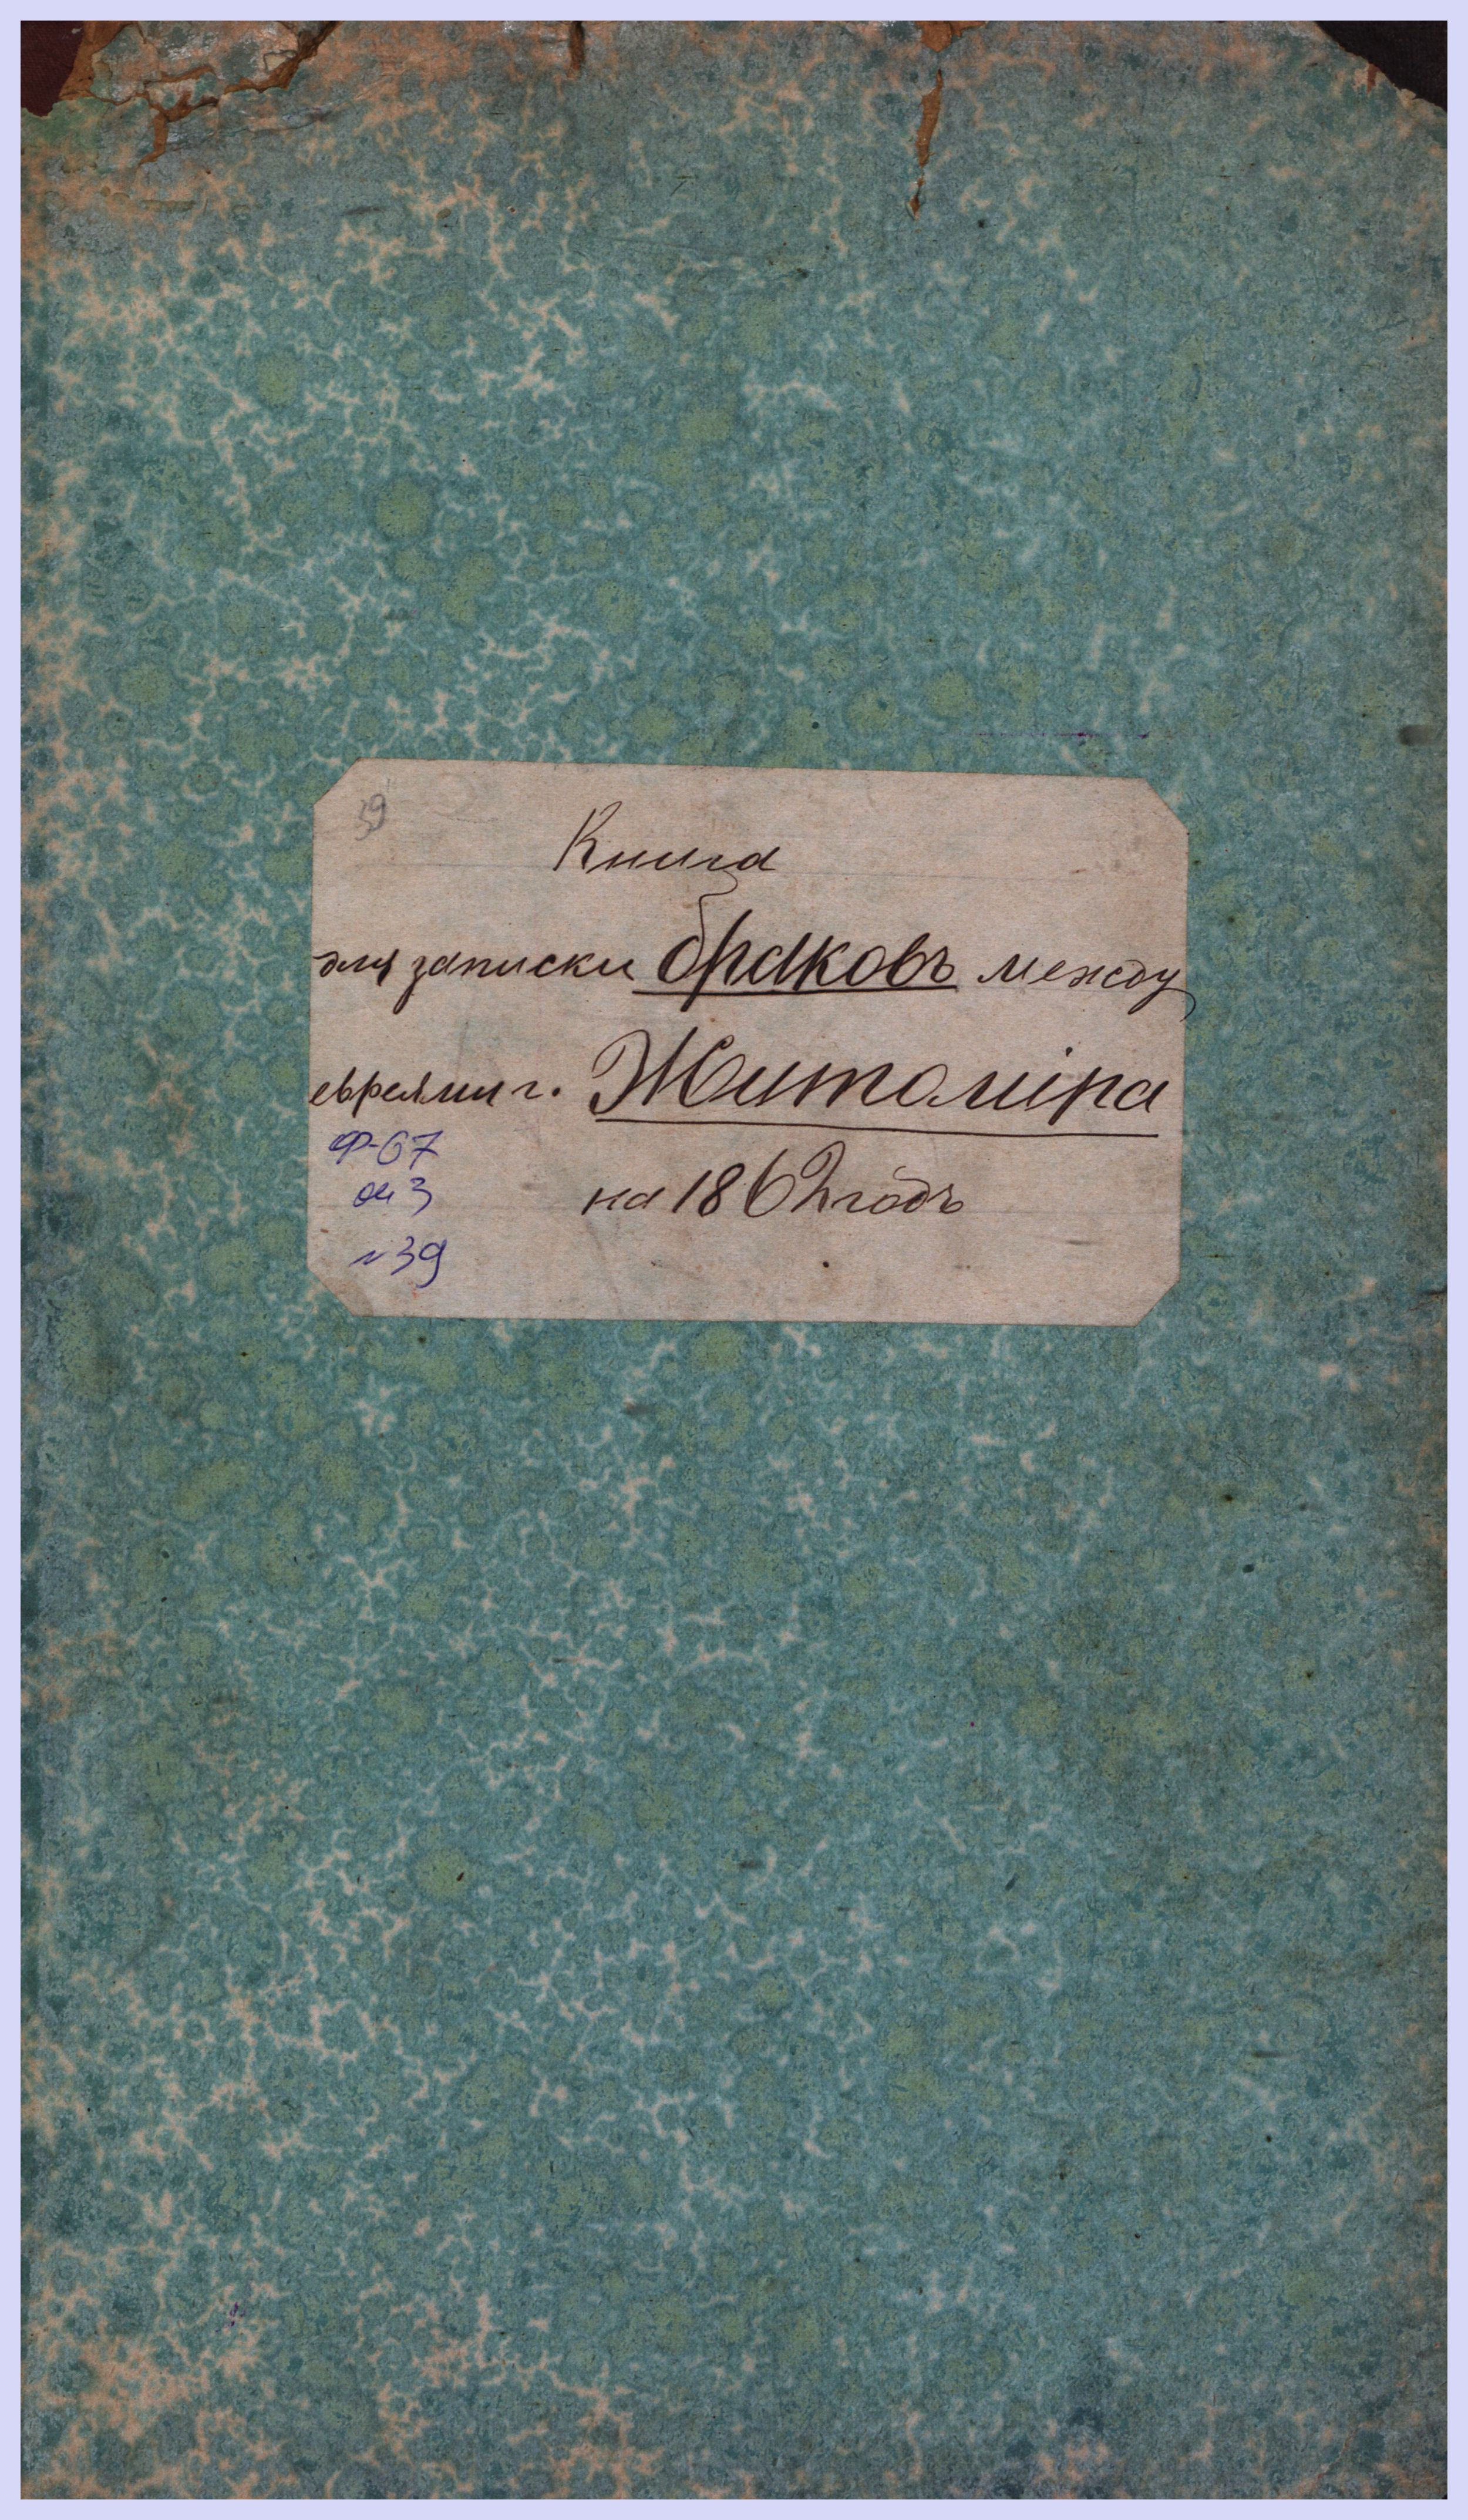 39
Книга
для записки браковъ между
евреями г. Житоміра
Ф-67
оп 3
на 1862 годъ
№ 39